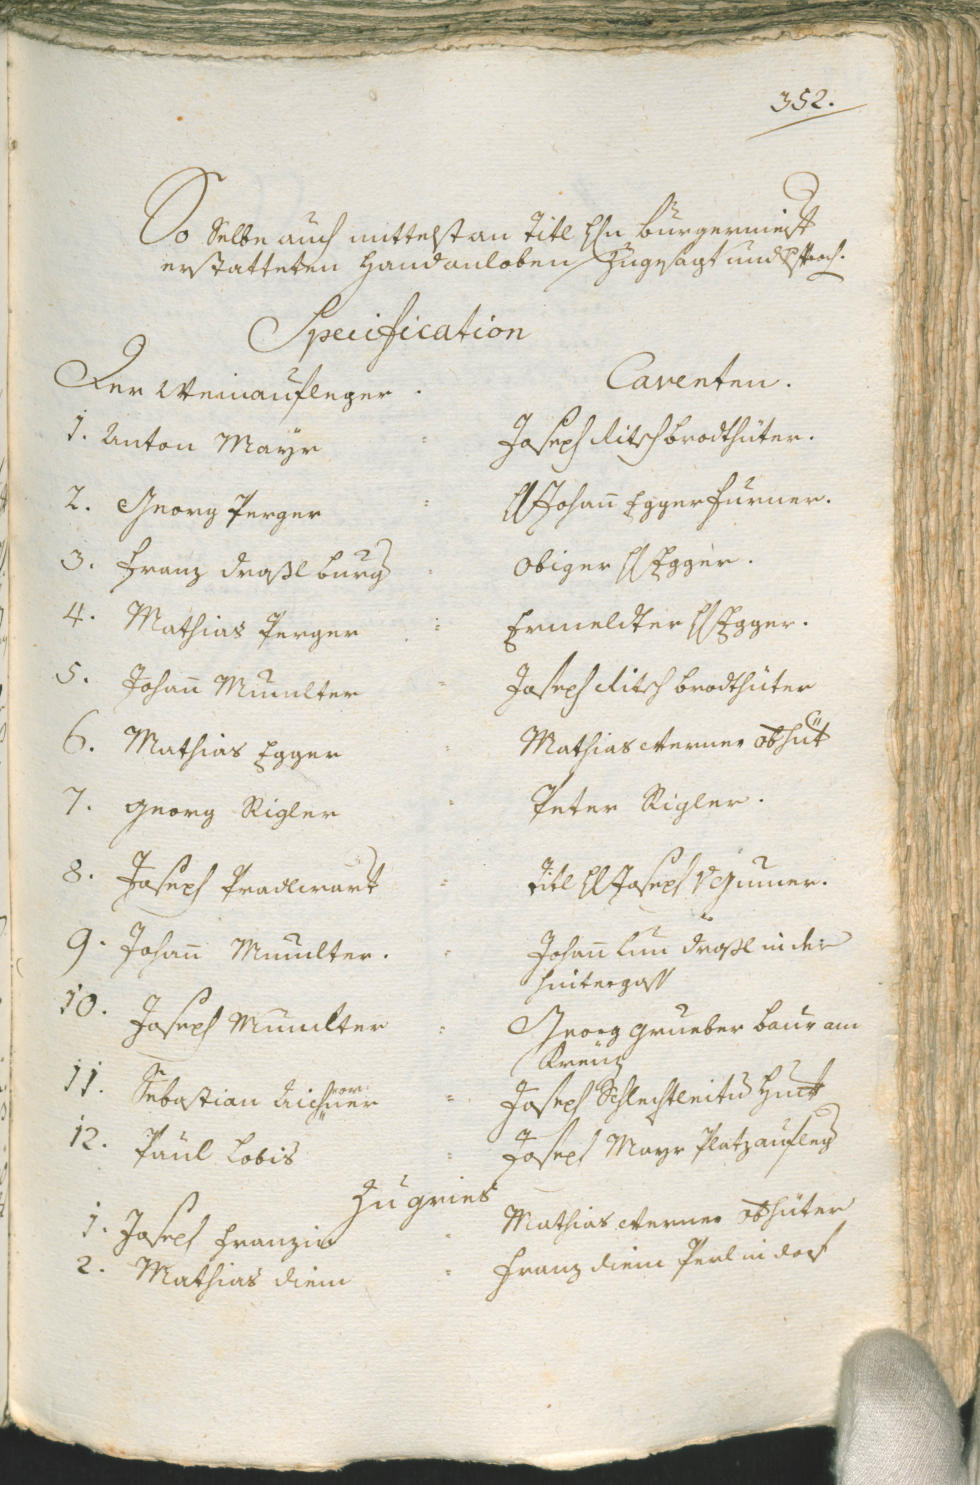 352.
So Selbe auch mittelst an Titl Hn burgermeist
erstatteten Handanloben Zugesagt und
Specification
Der Weinaufleger. Caventen.
1. Anton Mayr : Joseph Ritsch brodhüter.
2. Georg Perger : H Johañ Egger furner.
3. Franz draßl burg : obiger H Egger.
4. Mathias Perger : Ermeldter H Egger.
5. Johañ Mumelter : Joseph Ritsch brodhüter
6. Mathias Egger : Mathias Werner obhüt
7. georg Rigler : Peter Rigler.
8. Joseph Pradlwart : Titl H Joseph v Gumer.
9. Johañ Mumelter. : Johañ draßl in der
hintergass
10. Joseph Mumelter : Georg grueber baur am
Kreuz
11. Sebastian Aichner : Joseph Schlechtleitn
12. Paul Lobis : Joseph Mayr Platzaufleg
Zu gries
1. Joseph Franzin : Mathias Werner obhüter
2. Mathias diem : Franz diem Perl in dorf